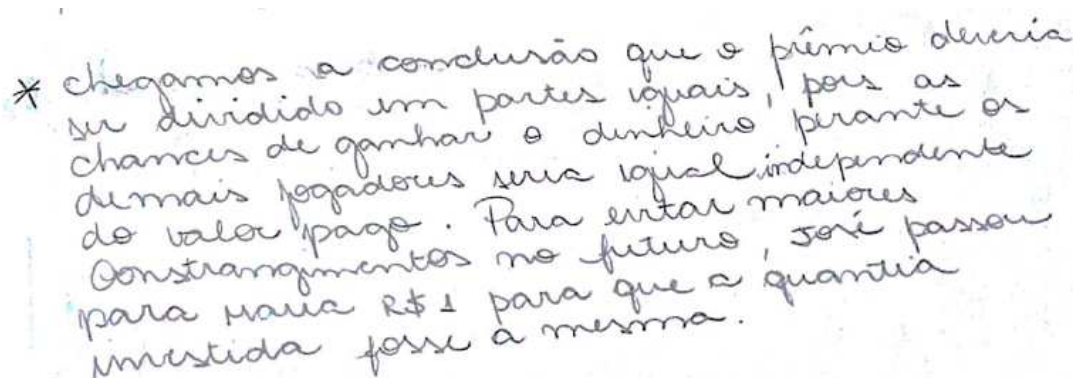 * chegamos a conclusão que o prêmio deveria
ser dividido em partes iguais, pois as
chances de ganhar o dinheiro perante os
demais jogadores seria igual independente
do valor pago. Para evitar maiores
Constrangimentos no futuro, José passou
para Maria R$ 1 para que a quantia
investida fosse a mesma.